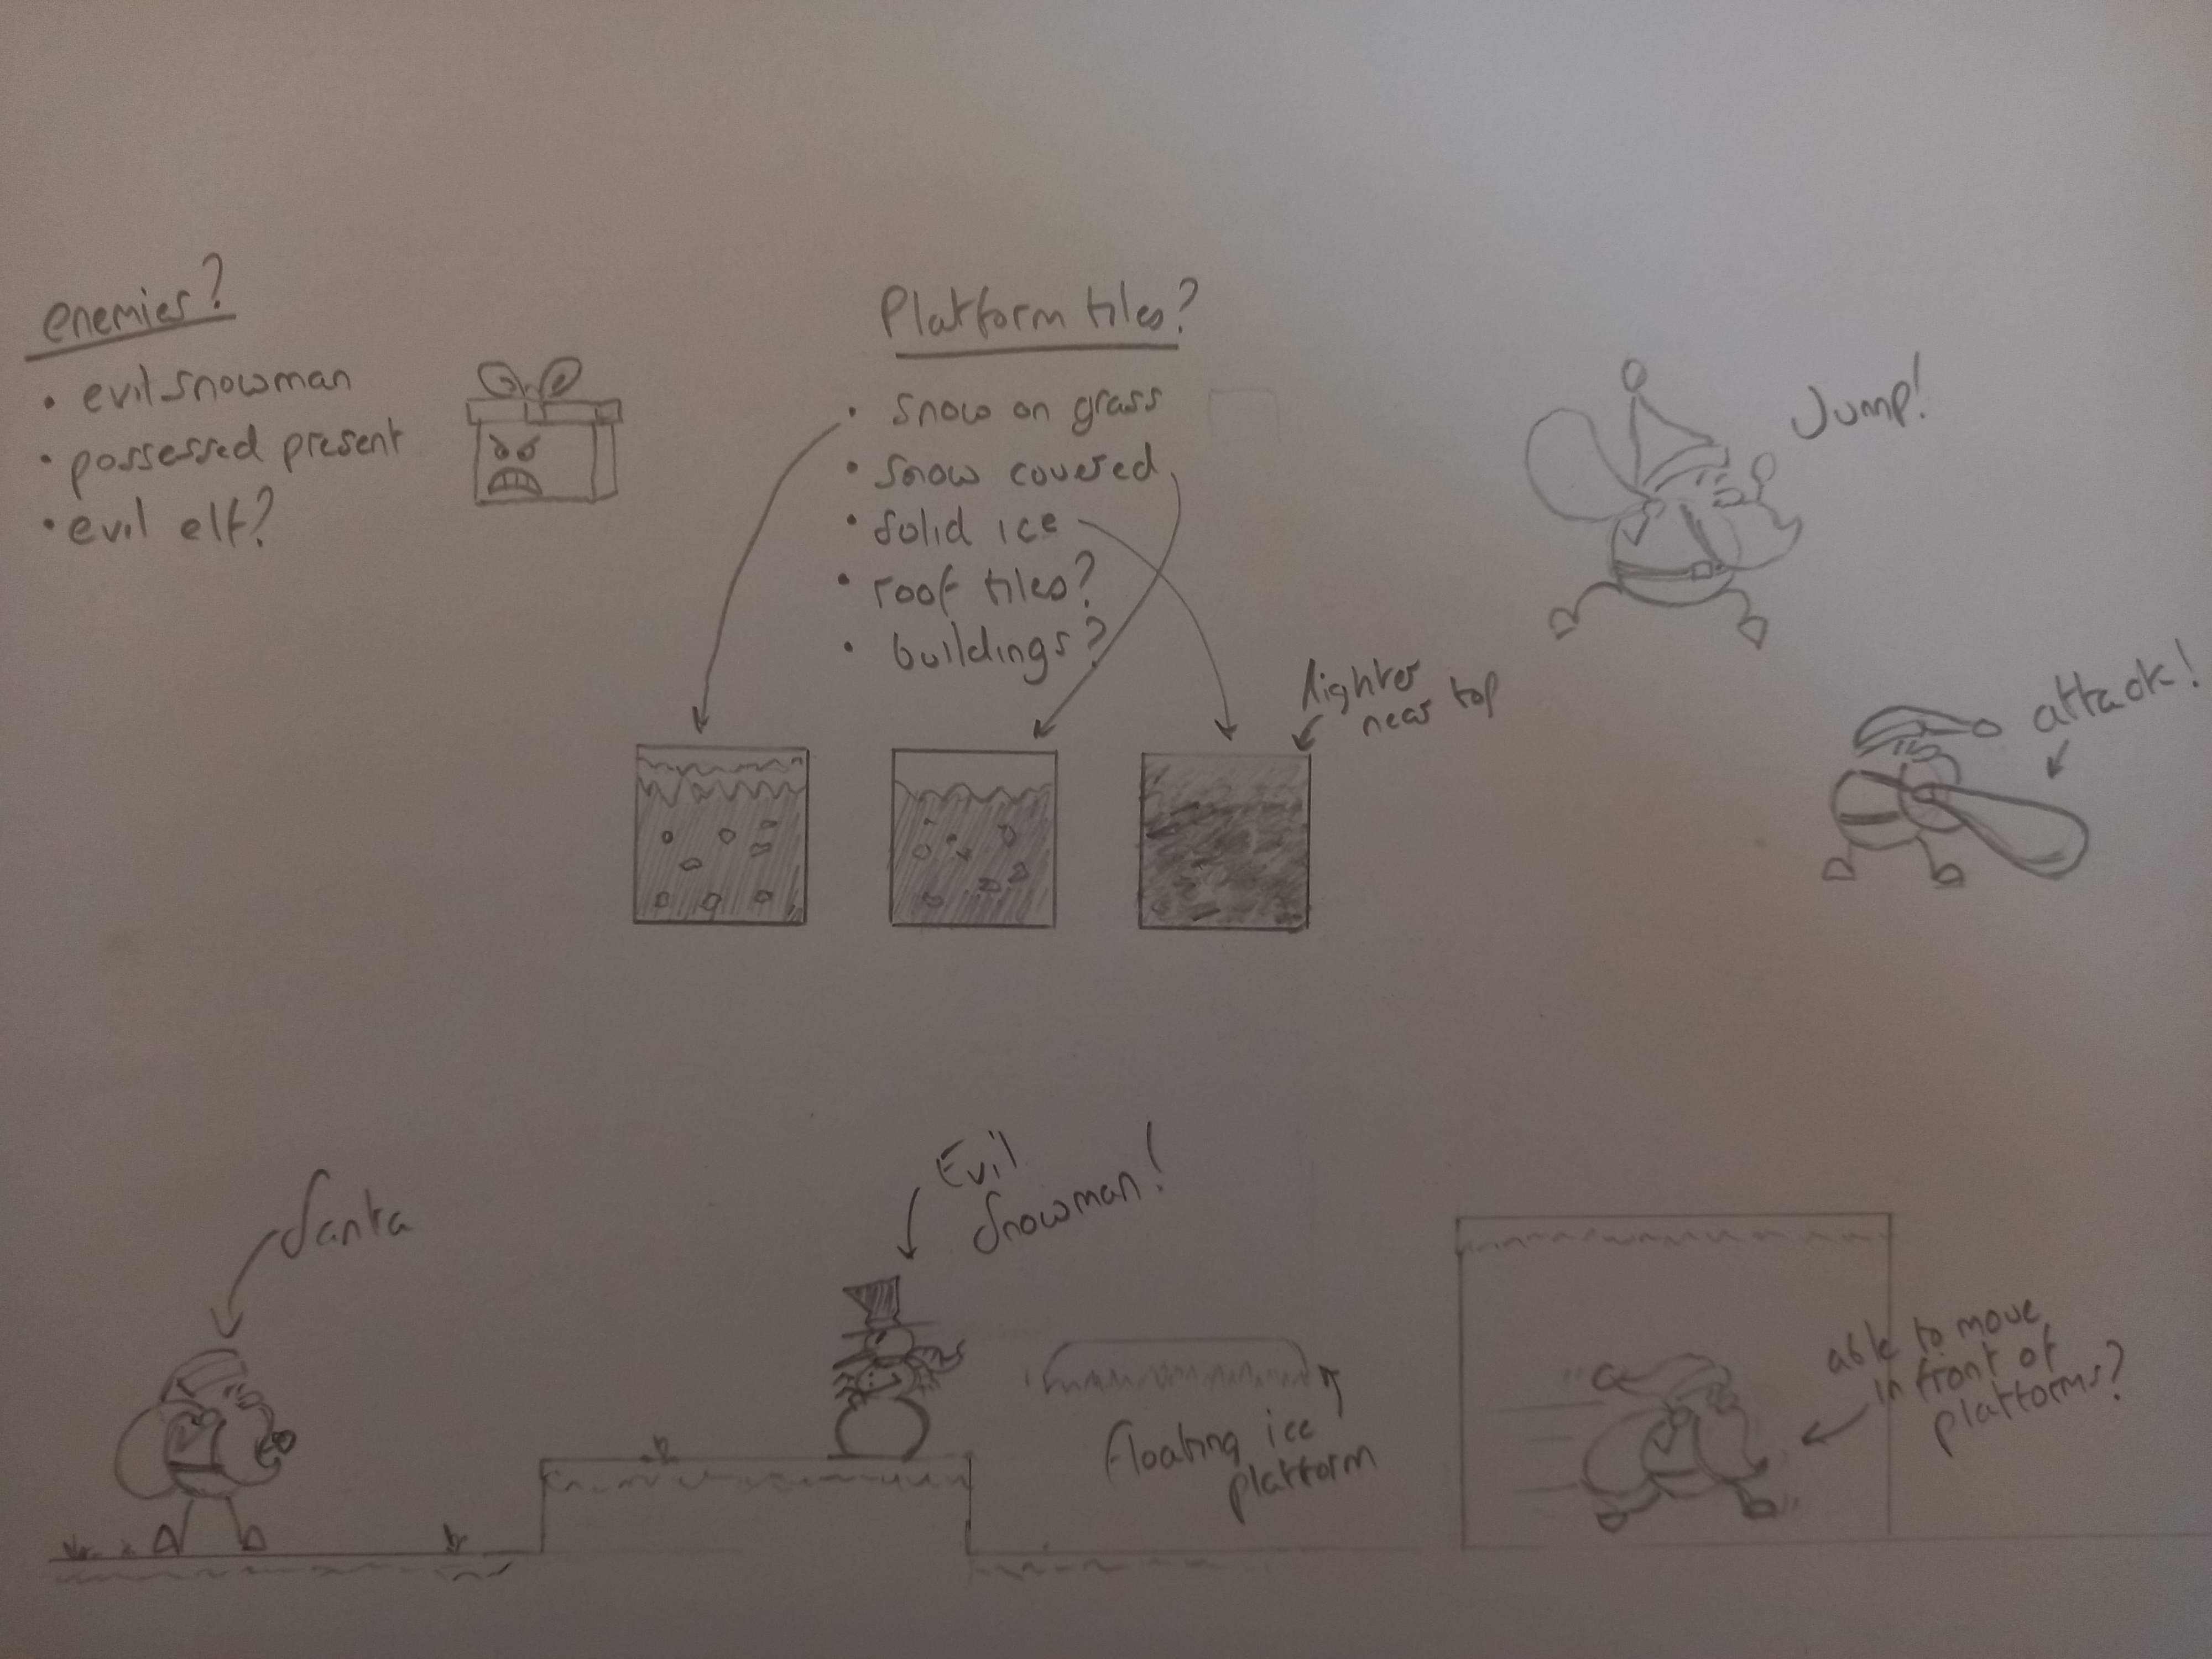 enemies?
• evil snowman
• possessed present
• evil elf?
Platform tiles?
• snow on grass
• snow covered
• solid ice
• roof tiles?
• buildings?
lighter
near top
Jump!
attack!
Santa
Evil
Snowman!
floating ice
platform
able to move
in front of
platforms?